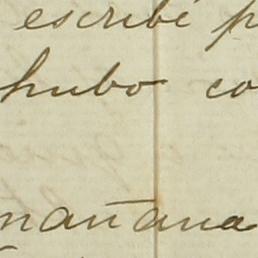 escribé p
hubo co
mañana